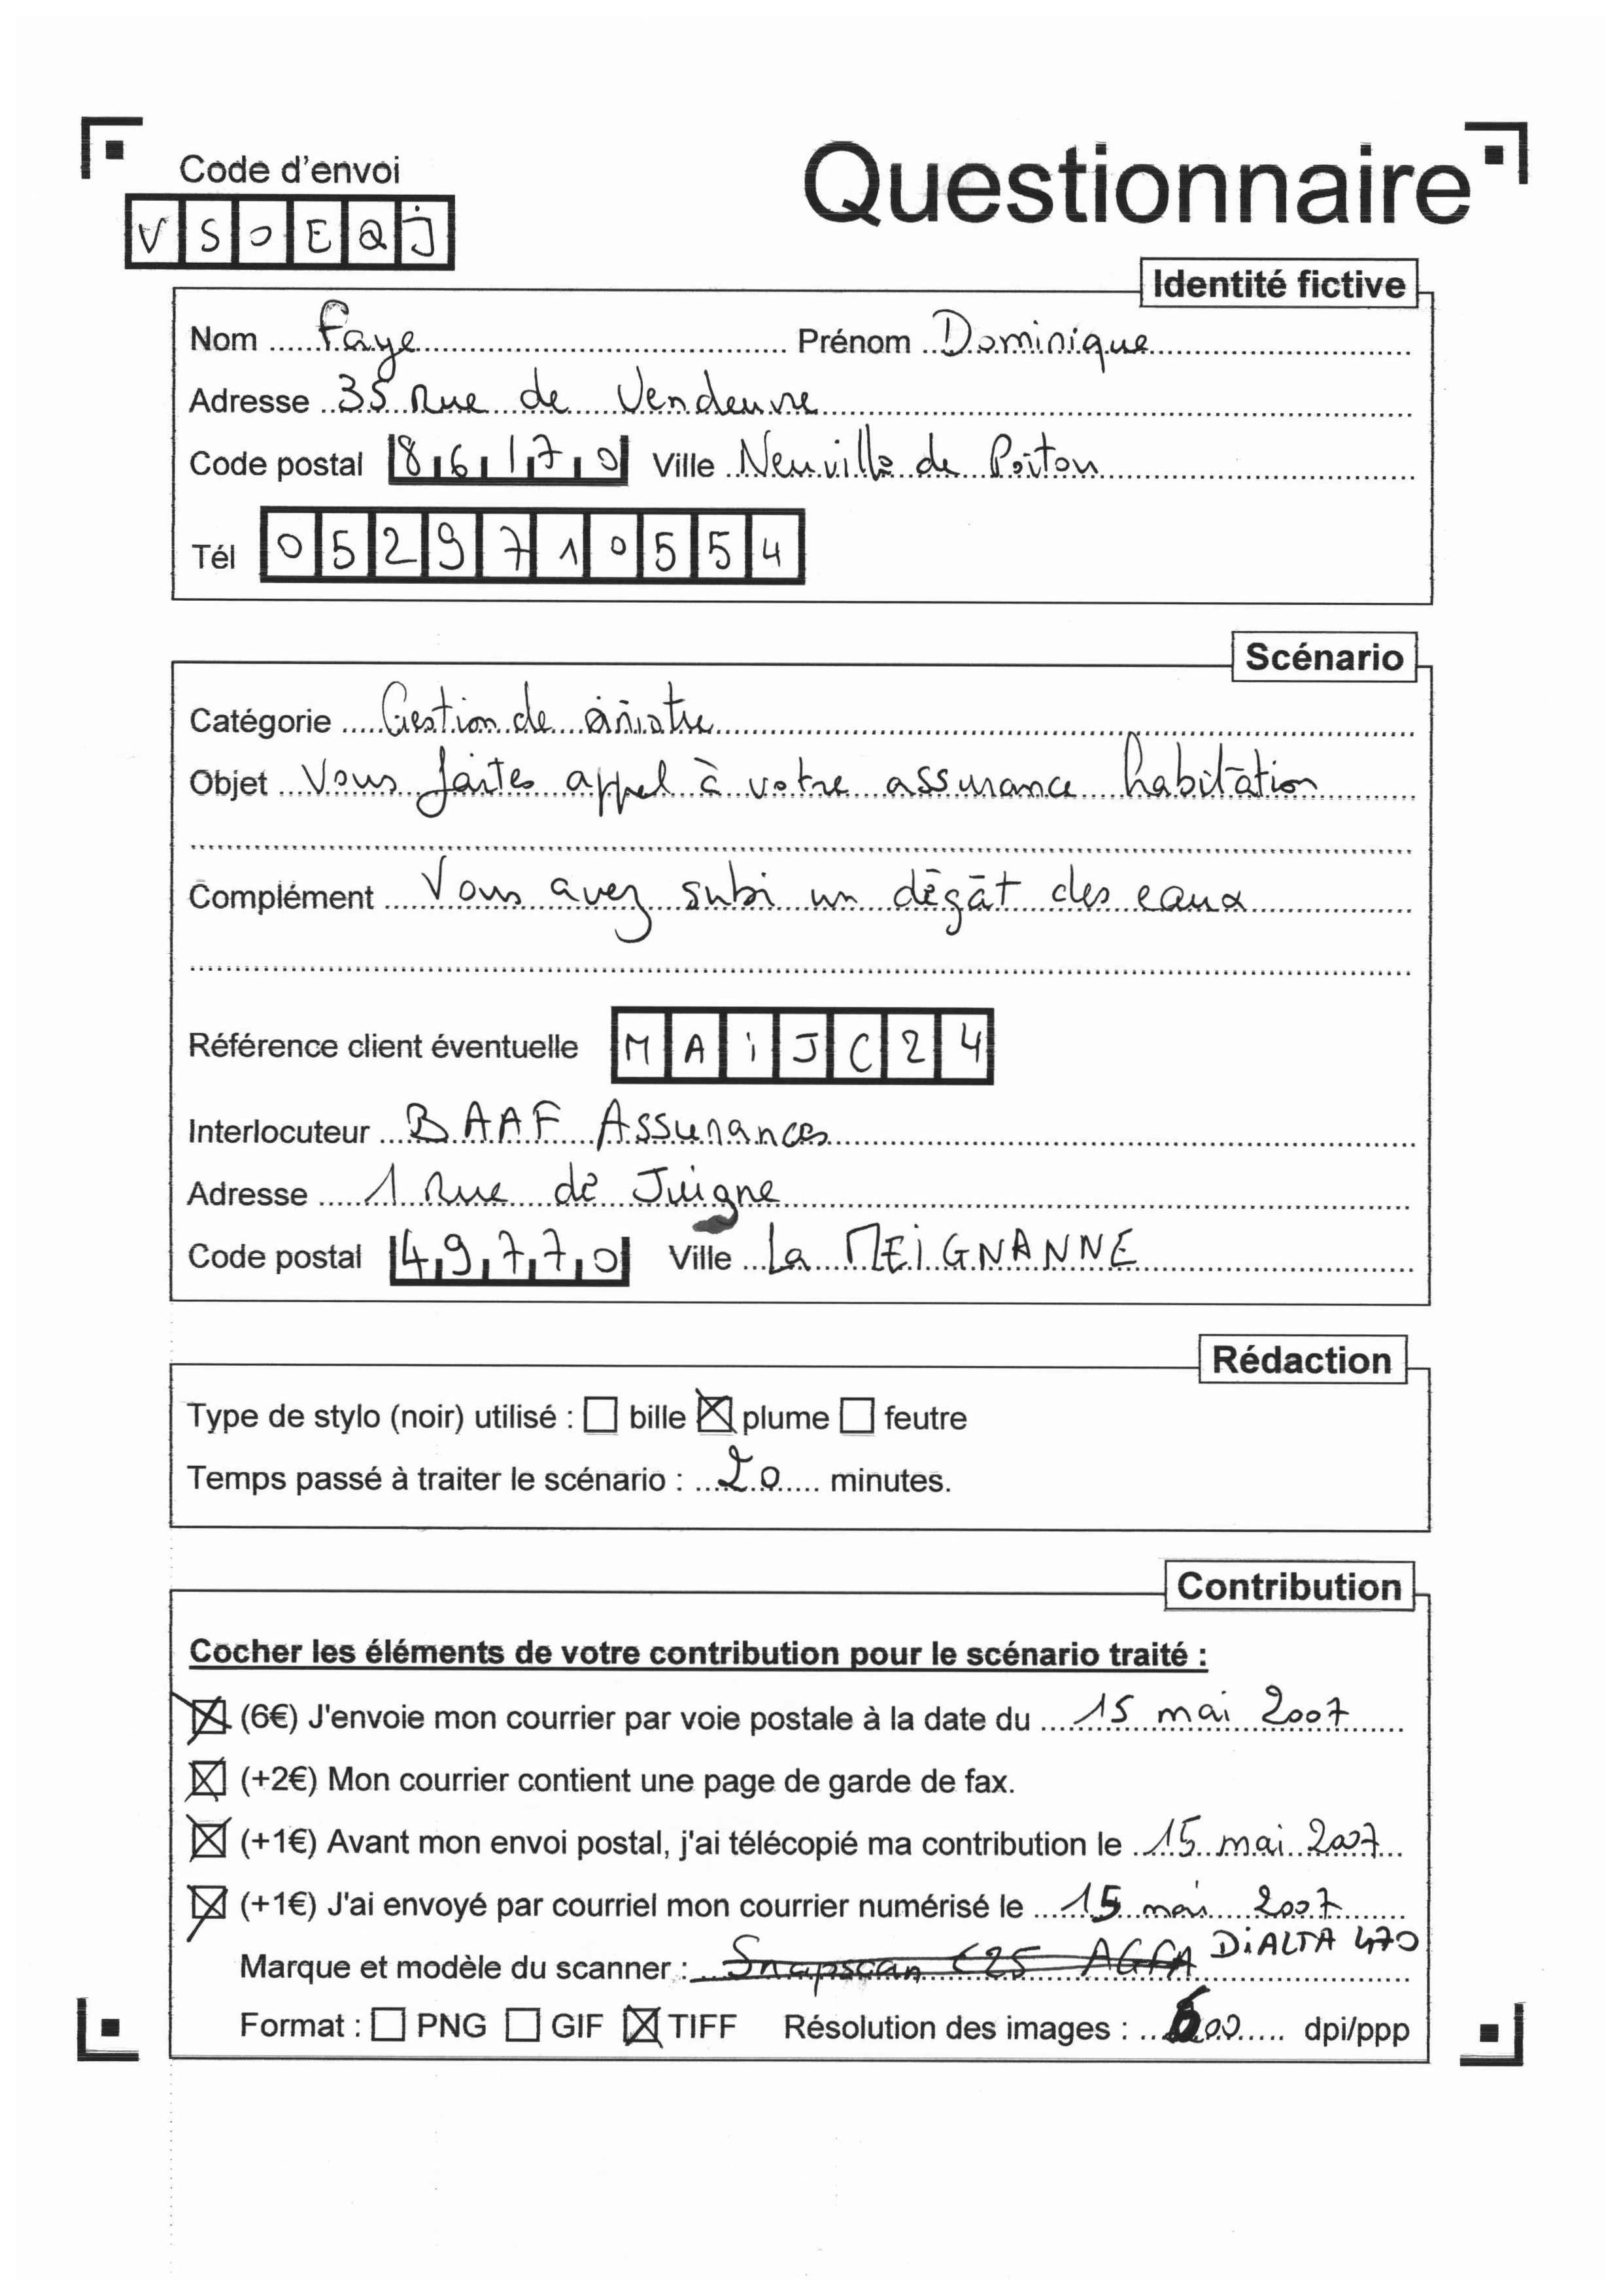 Code d'envoi
Questionnaire
V S O E Q J
Identité fictive
Nom Faye Prénom Dominique
Adresse 35 Rue de Vendeuvre
Code postal 86170 Ville Neuville de Poitou
Tél 0529710554
Scénario
Catégorie Gestion de sinistre
Objet Vous faites appel à votre assurance habitation
Complément Vous avez subi un dégât des eaux
Référence client éventuelle M A i J C 2 4
Interlocuteur BAAF Assurances
Adresse 1 Rue de Juigne
Code postal 49770 Ville La MEiGNANNE
Rédaction
Type de stylo (noir) utilisé : ☐ bille ☒ plume ☐ feutre
Temps passé à traiter le scénario : 20 minutes.
Contribution
Cocher les éléments de votre contribution pour le scénario traité :
☒ (6€) J'envoie mon courrier par voie postale à la date du 15 mai 2007
☒ (+2€) Mon courrier contient une page de garde de fax.
☒ (+1€) Avant mon envoi postal, j'ai télécopié ma contribution le 15 mai 2007
☒ (+1€) J'ai envoyé par courriel mon courrier numérisé le 15 mai 2007
Marque et modèle du scanner : Snapscan E25 AGFA DiALTA 470
Format : ☐ PNG ☐ GIF ☒ TIFF Résolution des images : 600 dpi/ppp